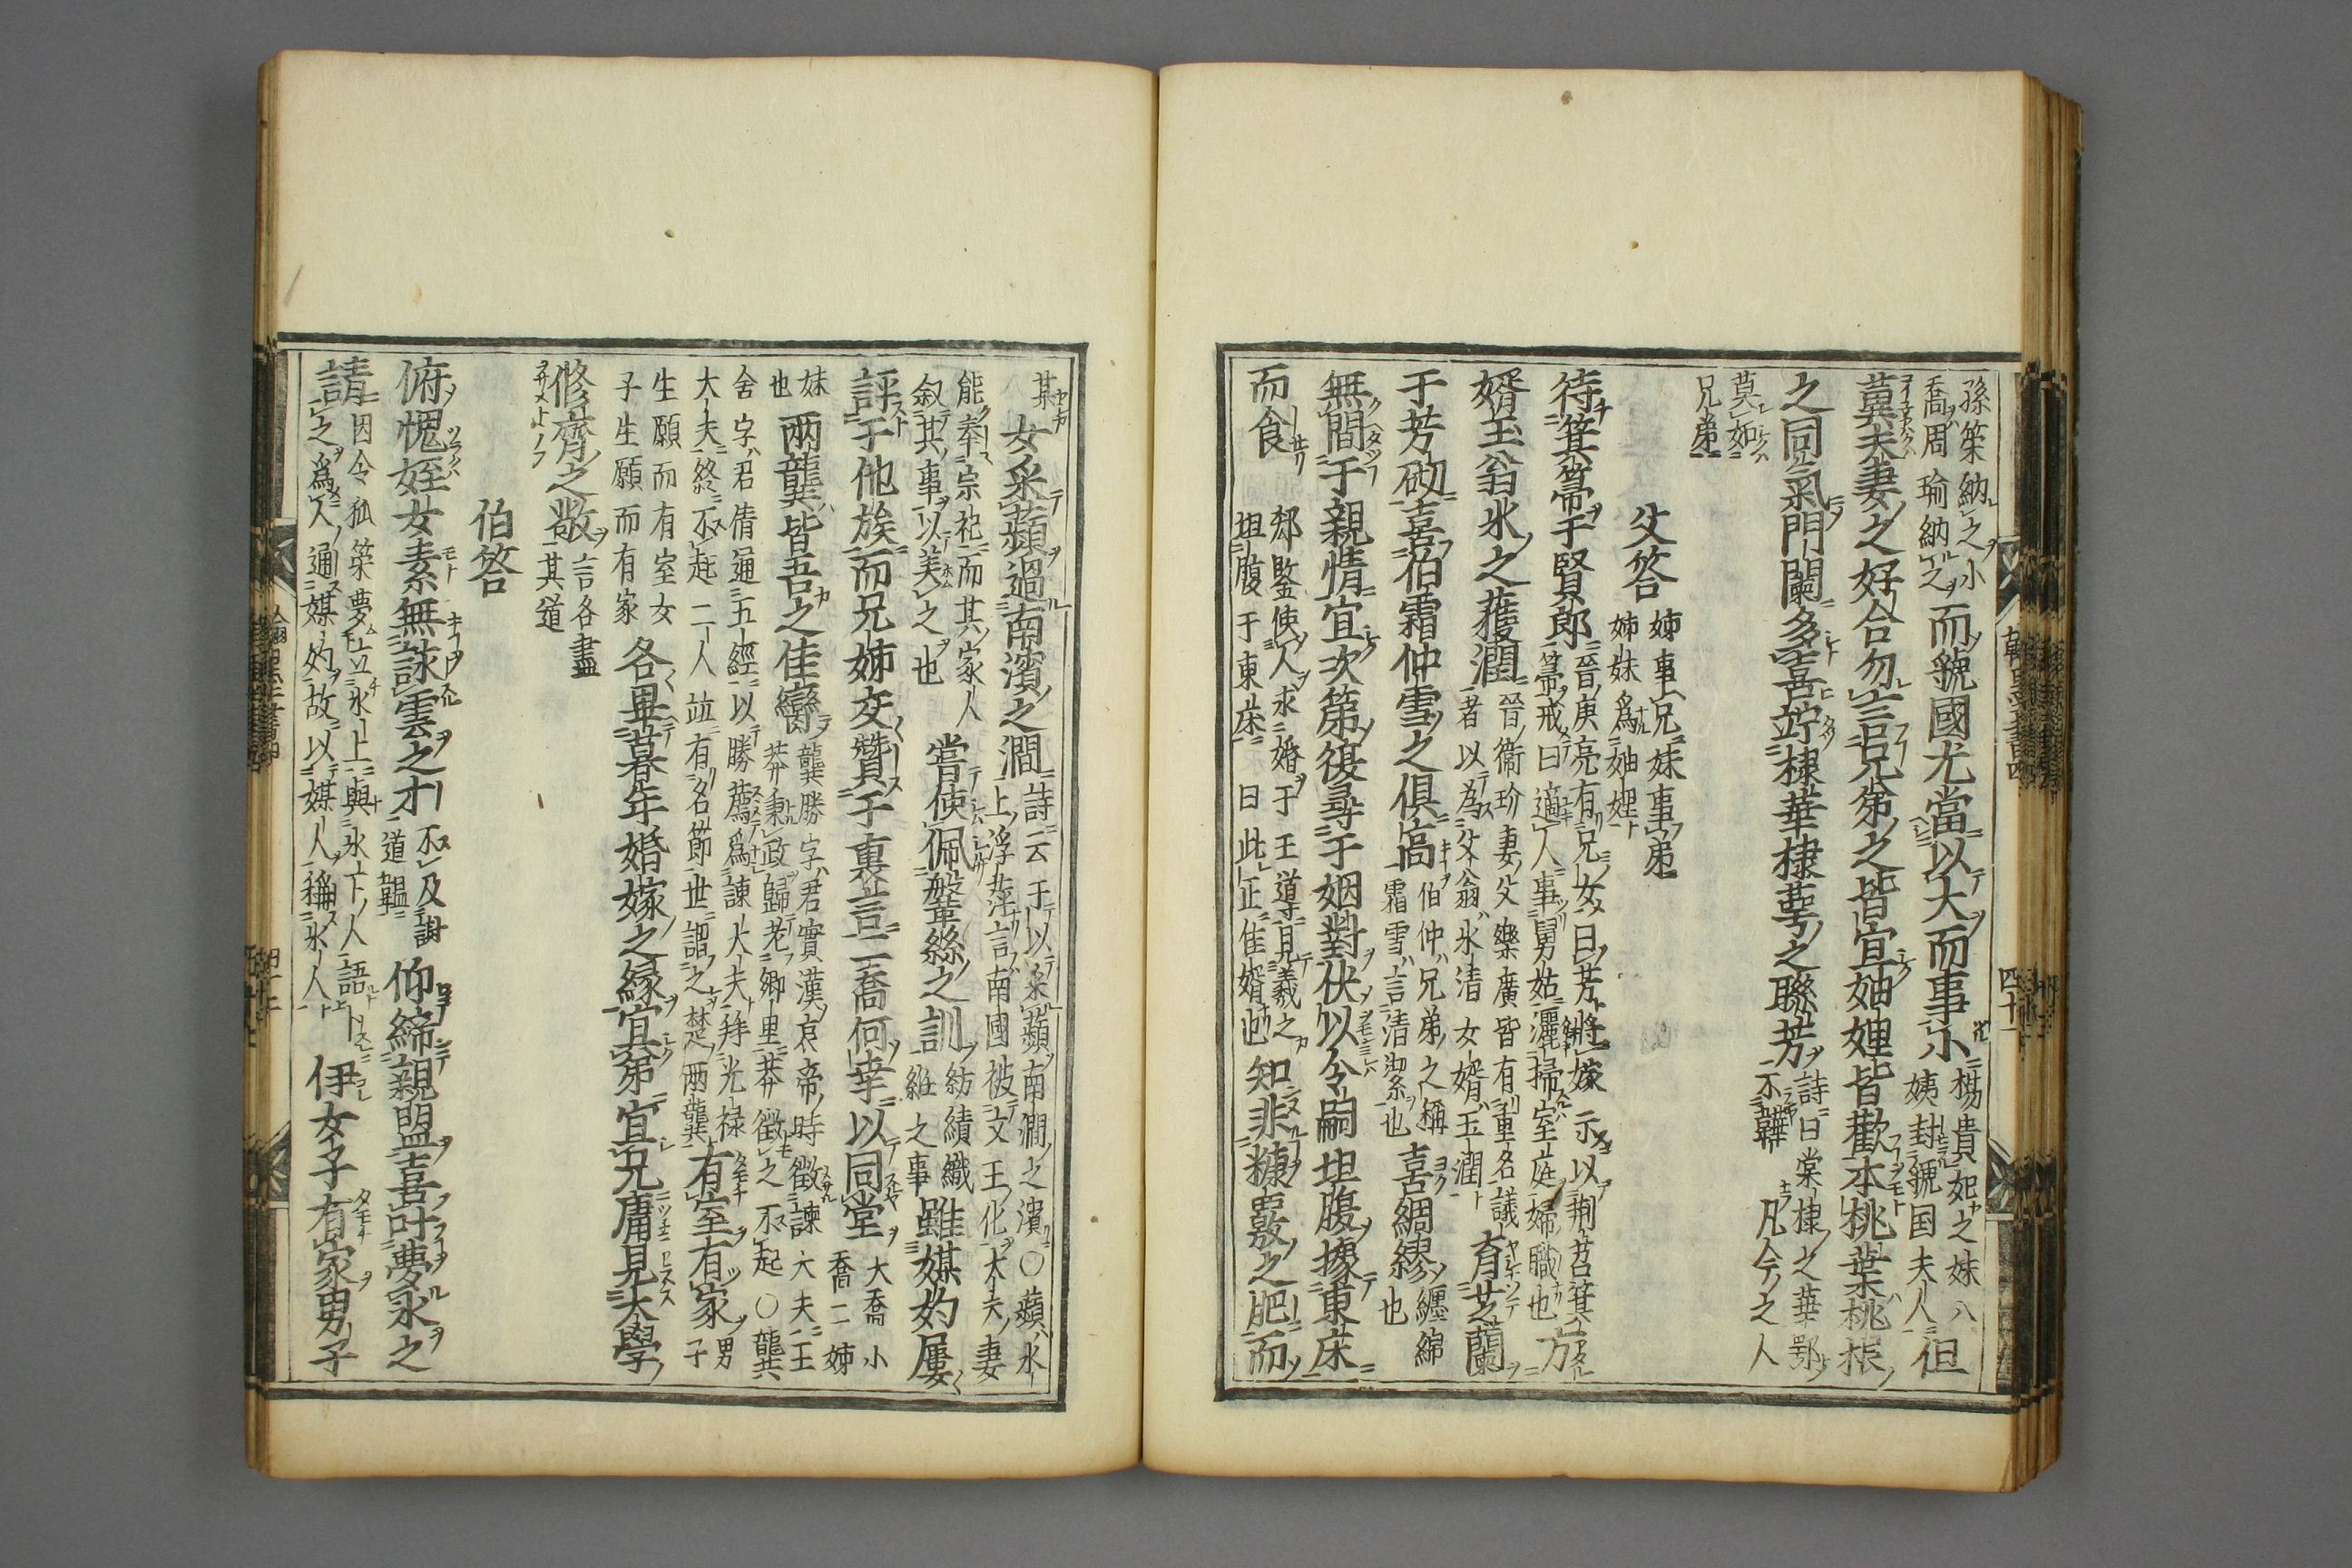 孫策納之小
喬周瑜納之
而虢國光當以大而事小
楊貴妃之妹八
姨封虢国夫人
但
冀夫妻之好合勿言兄弟之皆宜妯娌皆歡本桃葉桃根
之同氣門闌多喜竚棣華棣萼之聯芳
詩曰棠棣之華鄂
不韡韡
凡今之人
莫如
兄弟
父答
姊事兄妹事弟
姊妹爲妯娌
待箕箒于賢郎
晉庚亮有兄女曰芳將嫁示以荆苕箕
箒戒曰適人事舅姑灑掃室庭婦職也
方
婿玉翁氷之蒦潤
晉衞玠妻父樂廣皆有重名議
者以為父翁氷清女婿玉潤
育芝蘭
于芳砌喜伯霜仲雪之俱高
伯仲兄弟之稱
霜雪言清潔也
喜綢繆
纒綿
也
無間于親情宜次第復尋于姻對伏以令嗣坦腹據東床
而食
郄鍳使人求婚于王導見羲之
坦腹于東床曰此正佳婿也
知非糠覈之肥而
某女采蘋過南濱之澗
詩云于以采蘋南澗之濱〇蘋水
上浮萍言南國被文王化大夫妻
能奉宗祀而其家人
叙其事以美之也
嘗使佩鞶絲之訓
紡績織
維之事
雖媒妁屢
評于他族而兄姊交贊于裏言二喬何幸以同堂
大喬小
喬二姊
妹
也
兩龔皆吾之佳孌
龔勝字君實漢哀帝時徴諫大夫王
莽秉政歸老卿里莽徴之不起〇龔
舍字君倩通五經以勝薦爲諫大夫拜光禄
大夫終不起二人竝有名節世謂之楚兩龔
有室有家
男
子
生願而有室女
子生願而有家
各畢暮年婚嫁之縁宜弟宜兄庸見大學
修齊之效
言各盡
其道
伯答
俯愧姪女素無詠雪之才
不及謝
道韞
仰締親盟喜叶夢氷之
請
因令狐策夢立氷上與氷下人語
之爲人通媒妁故以媒人稱氷人
伊女子有家男子